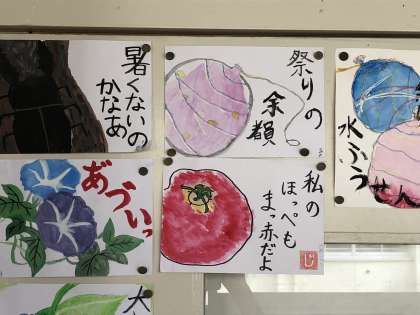 暑くないの
かなあ
祭りの
余韻
水ふう
せん
あ゛づいっ
私の
ほっぺも
まっ赤だよ
じ